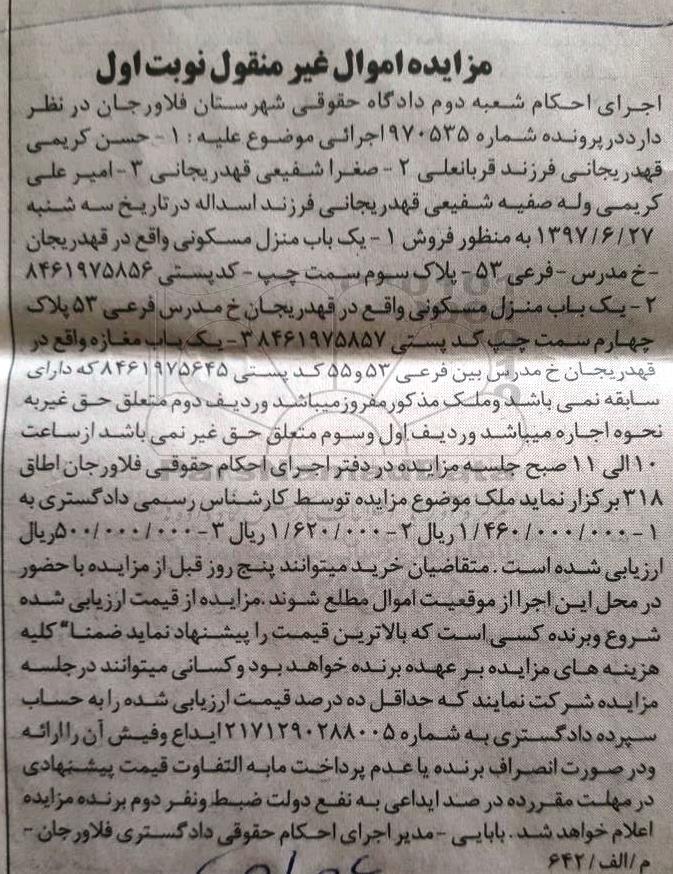 مزایده اموال غیر منقول نوبت اول
اجرای احکام شعبه دوم دادگاه حقوقی شهرستان فلاورجان در نظر
دارددرپرونده شماره ۹۷۰۵۳۵ اجرائی موضوع علیه : ۱ - حسن کریمی
قهدریجانی فرزند قربانعلی ۲ - صغرا شفیعی قهدریجانی ۳ - امیر علی
کریمی وله صفیه شفیعی قهدریجانی فرزند اسداله درتاریخ سه شنبه
۱۳۹۷/۶/۲۷ به منظور فروش ۱ - یک باب منزل مسکونی واقع در قهدریجان
-خ مدرس - فرعی ۵۳ - پلاک سوم سمت چپ - کدپستی ۸۴۶۱۹۷۵۸۵۶
۲ - یک باب منزل مسکونی واقع در قهدریجان خ مدرس فرعی ۵۳ پلاک
چهارم سمت چپ کد پستی ۸۴۶۱۹۷۵۸۵۷ ۳ - یک باب مغازه واقع در
قهدریجان خ مدرس بین فرعی ۵۳ و ۵۵ کد پستی ۸۴۶۱۹۷۵۶۴۵ که دارای
سابقه نمی باشد وملک مذکور مفروزمیباشد وردیف دوم متعلق حق غیربه
نحوه اجاره میباشد وردیف اول وسوم متعلق حق غیر نمی باشد ازساعت
۱۰ الی ۱۱ صبح جلسه مزایده در دفتر اجرای احکام حقوقی فلاورجان اطاق
۳۱۸ برگزار نماید ملک موضوع مزایده توسط کارشناس رسمی دادگستری به
۱ - ۱/۴۶۰/۰۰۰/۰۰۰ ریال ۲ - ۱/۶۲۰/۰۰۰ ریال ۳ - ۵۰۰/۰۰۰/۰۰۰ریال
ارزیابی شده است . متقاضیان خرید میتوانند پنج روز قبل از مزایده با حضور
در محل این اجرا از موقعیت اموال مطلع شوند .مزایده از قیمت ارزیابی شده
شروع وبرنده کسی است که بالاترین قیمت را پیشنهاد نماید ضمنا" کلیه
هزینه های مزایده بر عهده برنده خواهد بود وکسانی میتوانند درجلسه
مزایده شرکت نمایند که حداقل ده درصد قیمت ارزیابی شده را به حساب
سپرده دادگستری به شماره ۲۱۷۱۲۹۰۲۸۸۰۰۵ ایداع وفیش آن را ارائه
ودر صورت انصراف برنده یا عدم پرداخت مابه التفاوت قیمت پیشنهادی
در مهلت مقررده در صد ایداعی به نفع دولت ضبط ونفر دوم برنده مزایده
اعلام خواهد شد . بابایی - مدیر اجرای احکام حقوقی دادگستری فلاورجان -
م/الف/۶۴۲